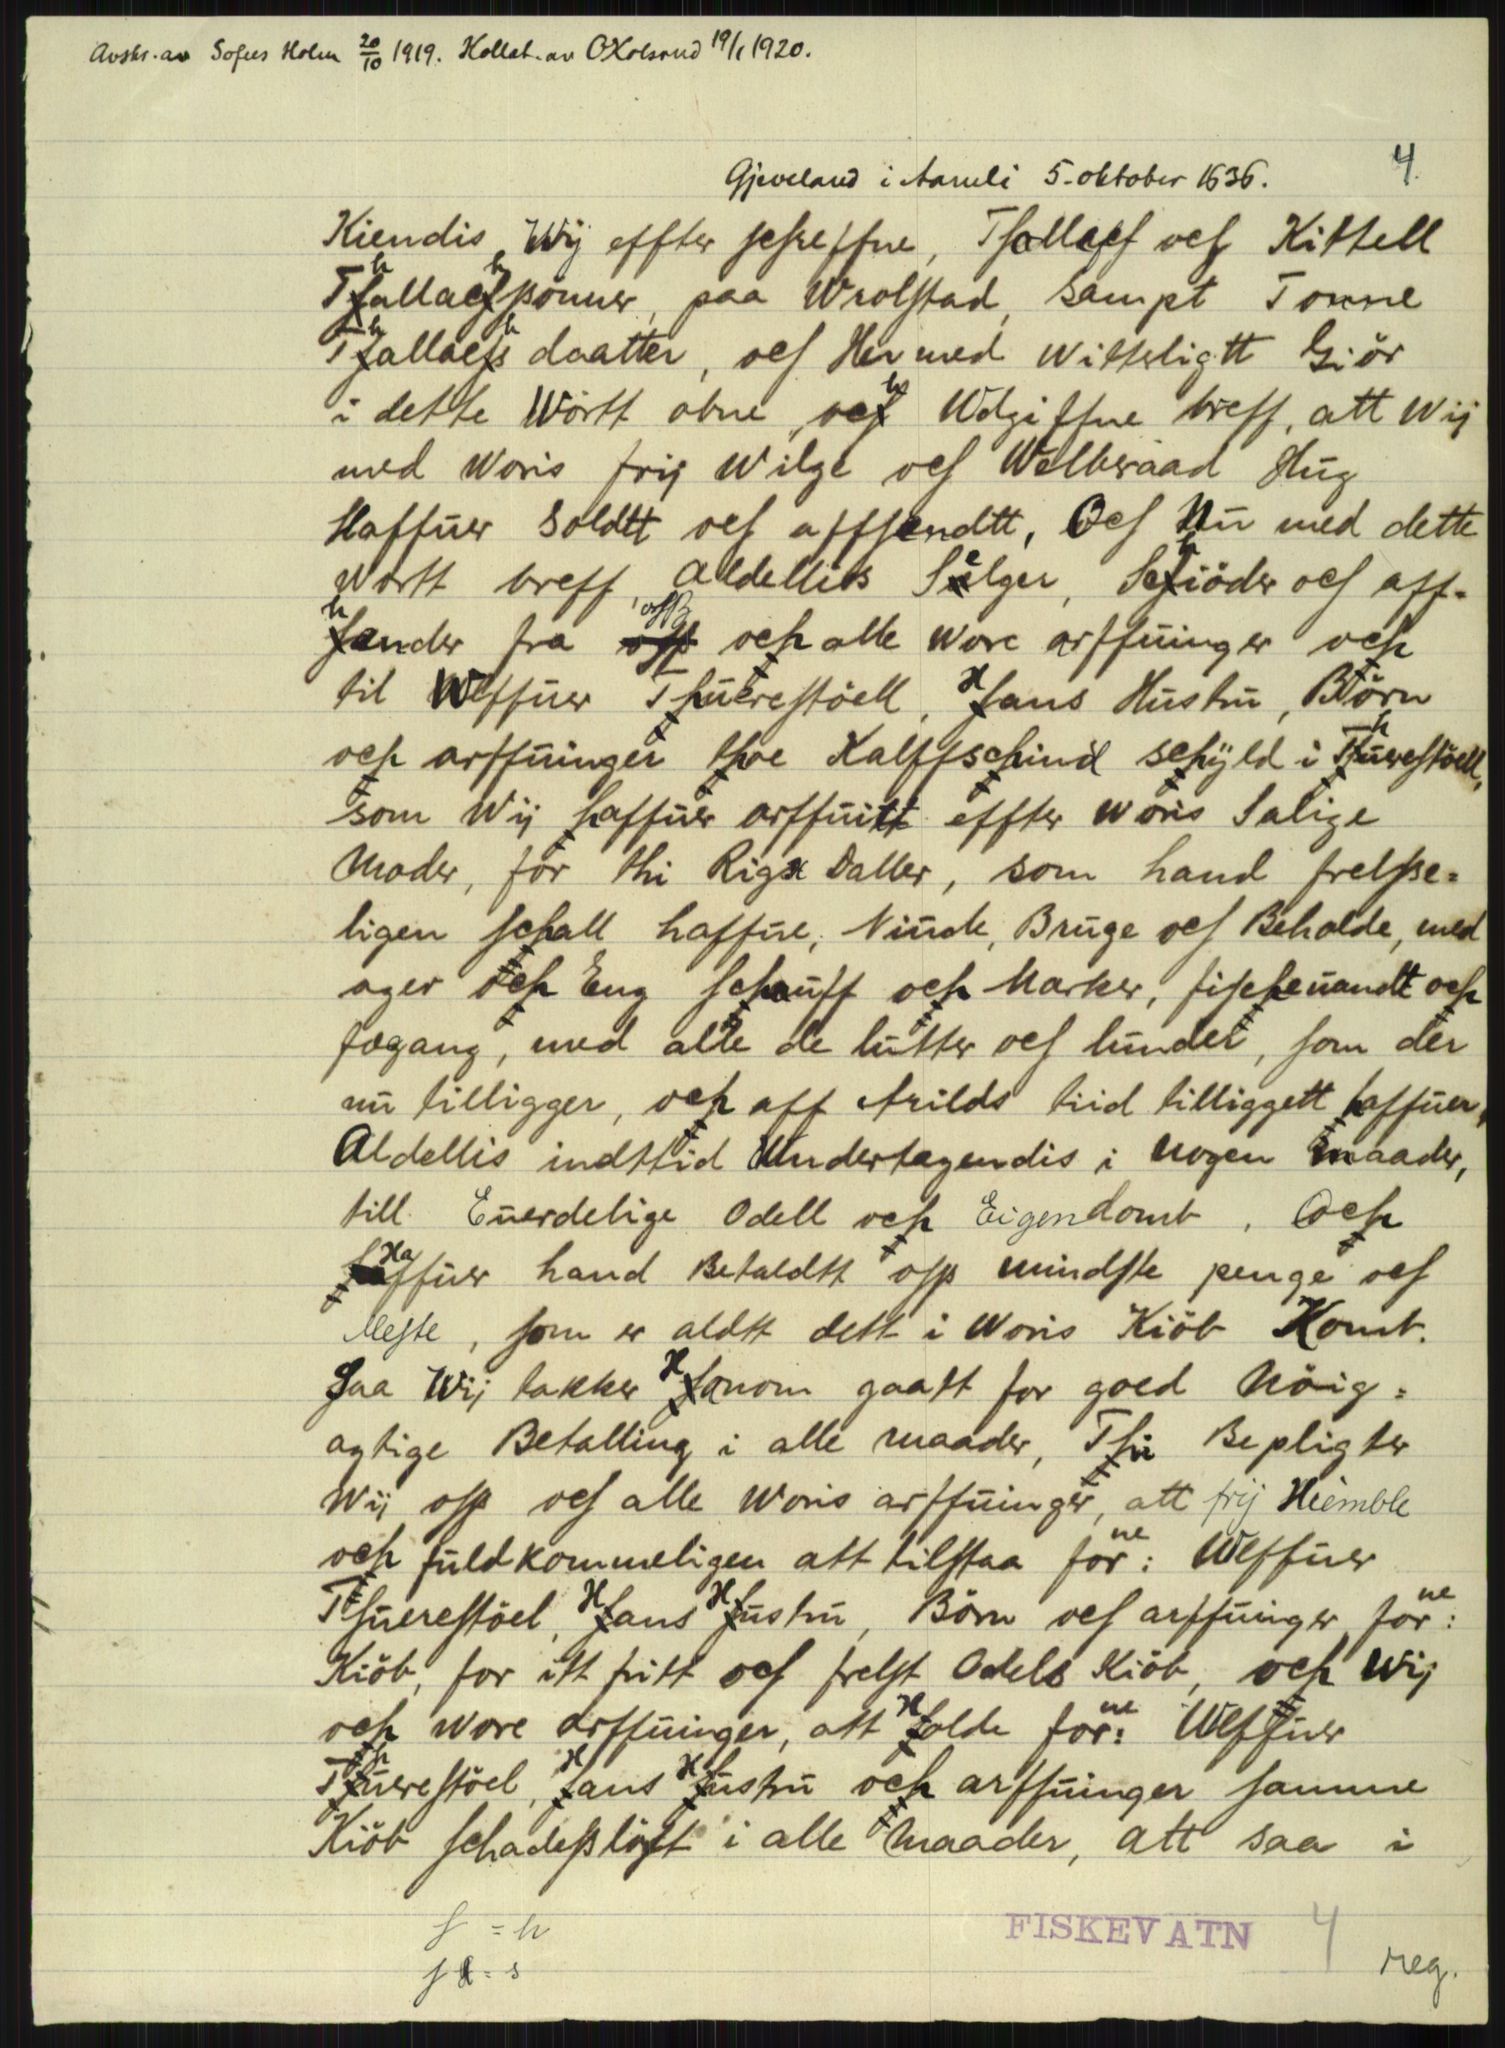 Avskr. av Sofus Holm 20/10 1919. Kollat. av O Kolsrud 19/1 1920.
4.
Gjeveland i Aamli 5. oktober 1636.
Kiendis Wij effter schreffne, Thallach och Kittell
Thallachsønner, paa Wrolstad, sampt Tonne
Thallachs daatter, och Her med witterligtt Giör
i dette Wörtt obne, och Wdgiffne breff, att Wij
med Woris frij Wilge och Welberaad Hug
Haffuer Soldtt och affhendtt, Och Nu med dette
Wortt breff, Aldellis Selger, Schiöder och aff-
hender fra oss och alle wore arffuinger och
til Weffuer Thuerestöell, Hans Hustru, Börn
och arffuinger thoe Kalffschind schyld i Thuerestöell,
som Wij haffuer arffuitt effter woris Salige
Moder, for thi Rigs Daller, som hand frelsse-
ligen schall haffue, Niude, Bruge och Beholde, med
ager och Eng schouff och Marker, fischeuandt och
fægang, med alle de lutter och lunder, som der
nu tilligger, och aff Arilds tiid tilliggett haffuer,
Aldellis indttid Undertagendis i nogen maader,
till Euerdelige Odell och Eigendomb, Och
Haffuer hand Betaldtt oss mindste penge och
Meste, som er aldtt dett i Woris Kiöb Komb.
Saa Wij takker Hanom gaatt for goed Nöig-
agtige Betalling i alle maader, Thi Bepligter
Wij oss och alle Woris arffuinger, att frij Hiemble
och fuldkommeligen att tilstaa forne: Weffuer
Thuerestöel, Hans Hustru, Börn och arffuinger forne:
Kiöb, for itt fritt och frelst Odels Kiöb, och Wij
och wore arffuinger, att Holde forne: Weffuer
Thuerestöel, Hans Hustru och arffuinger samme
Kiöb schadesslöst i alle Maader, att saa i
f = h
ſ = s
FISKEVATN
4
reg.